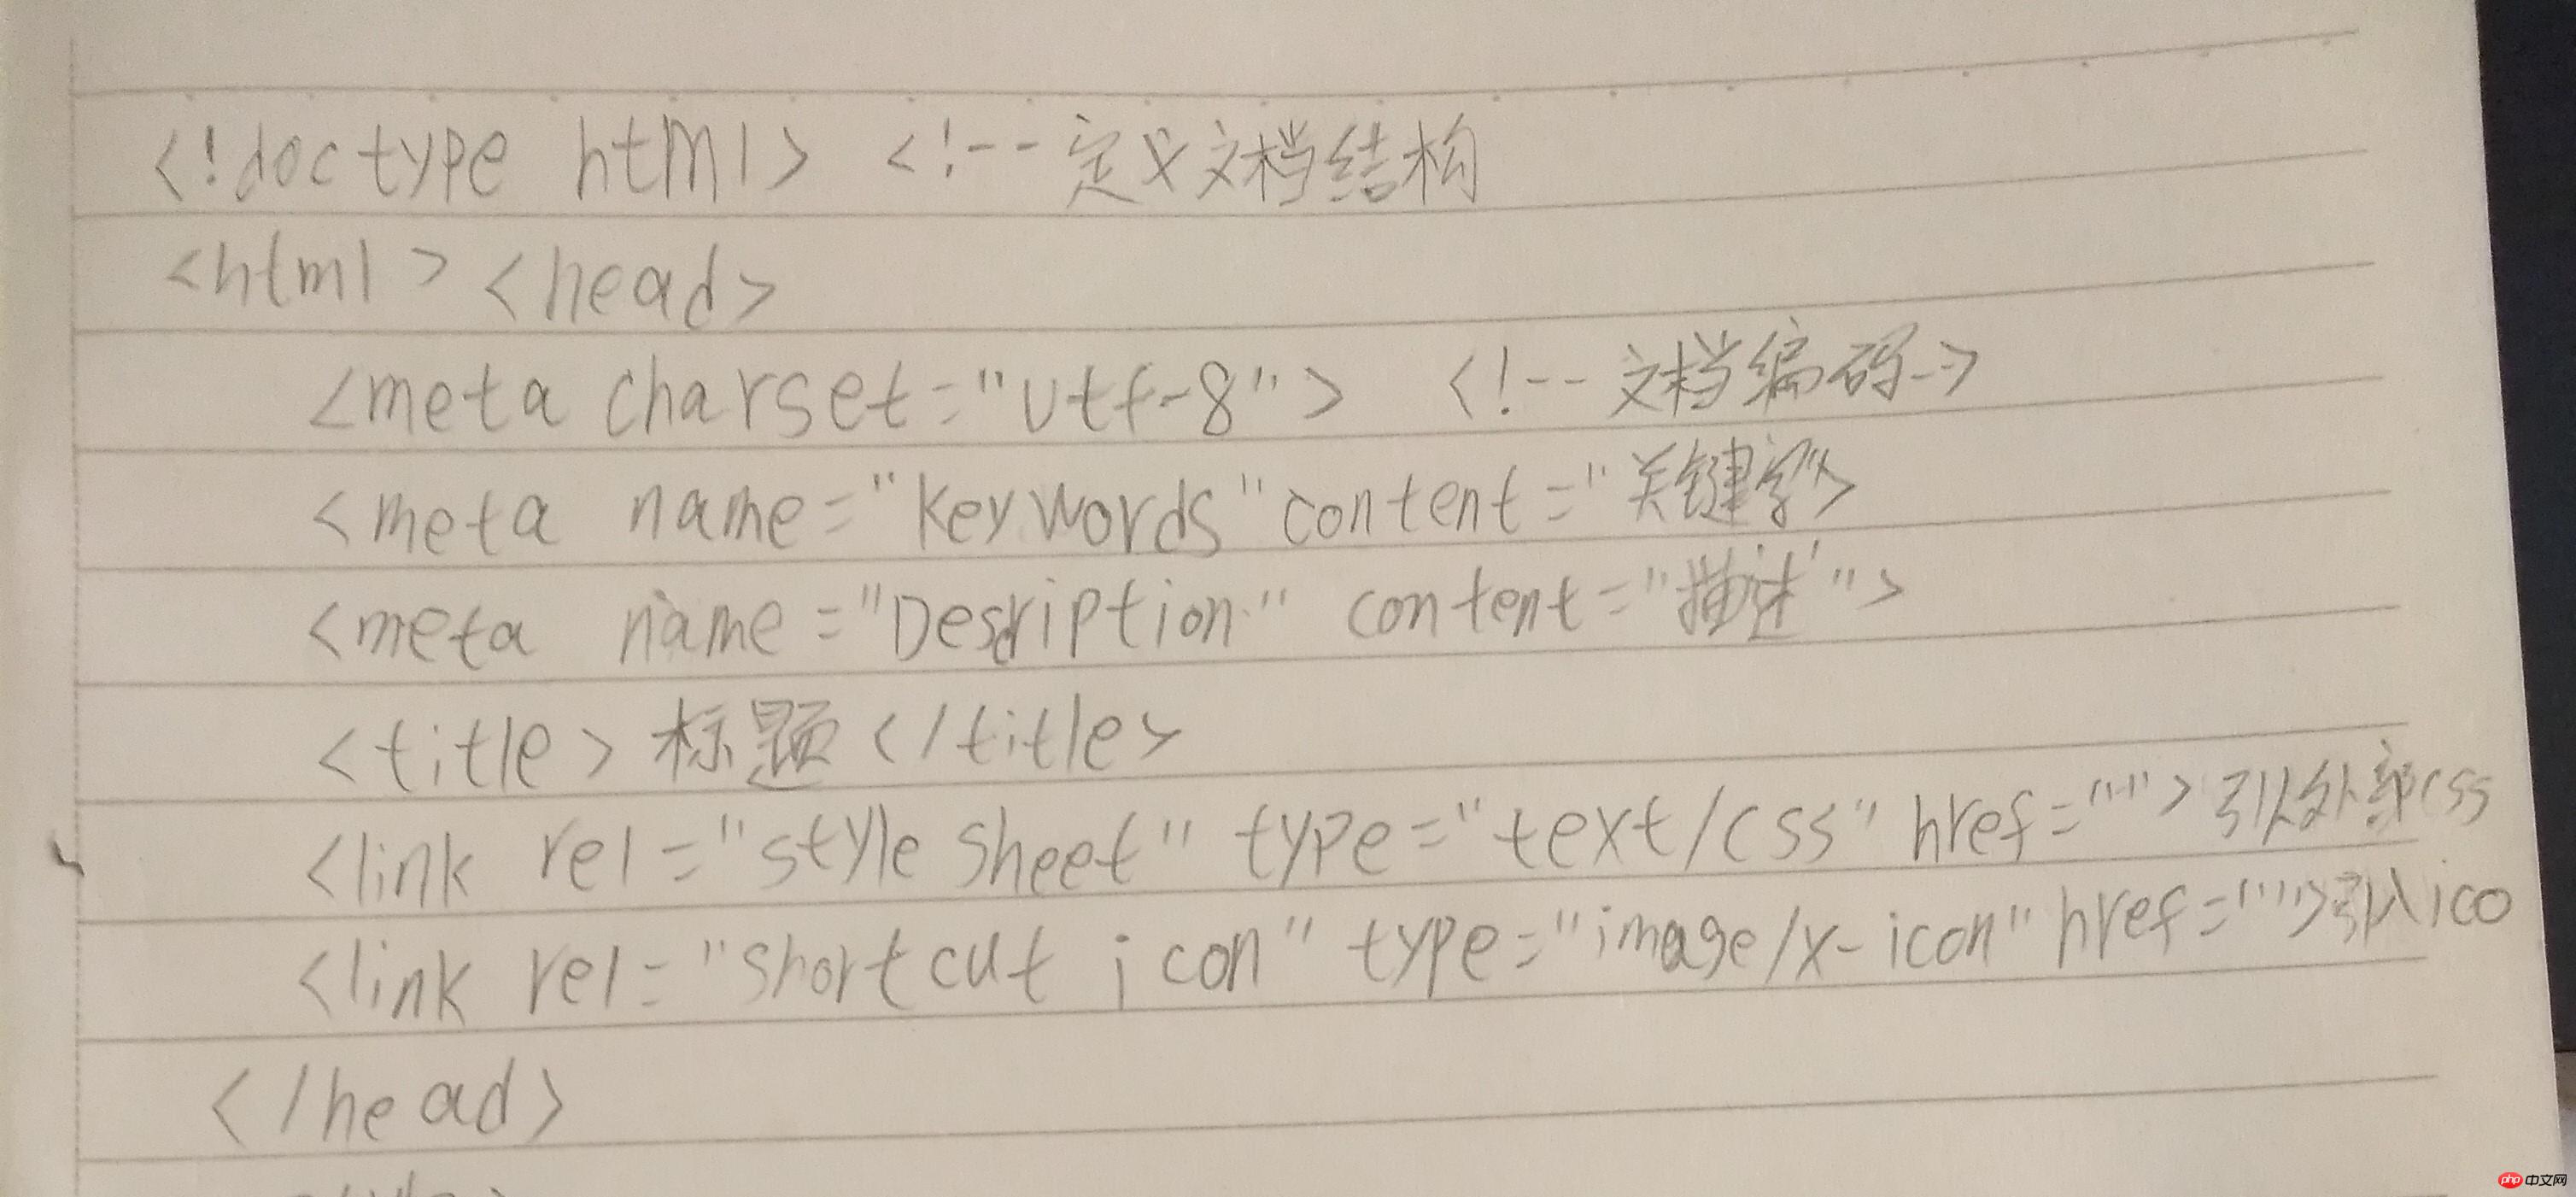 <!doctype html> <!-- 定义文档结构
<html> <head>
<meta charset="utf-8"> <!-- 文档编码-->
<meta name="keywords" content="关键字">
<meta name="Description" content="描述">
<title>标题</title>
<link rel="stylesheet" type="text/css" href=""> 引入外部css
<link rel="shortcut icon" type="image/x-icon" href="">引入ico
</head>
php 中文网